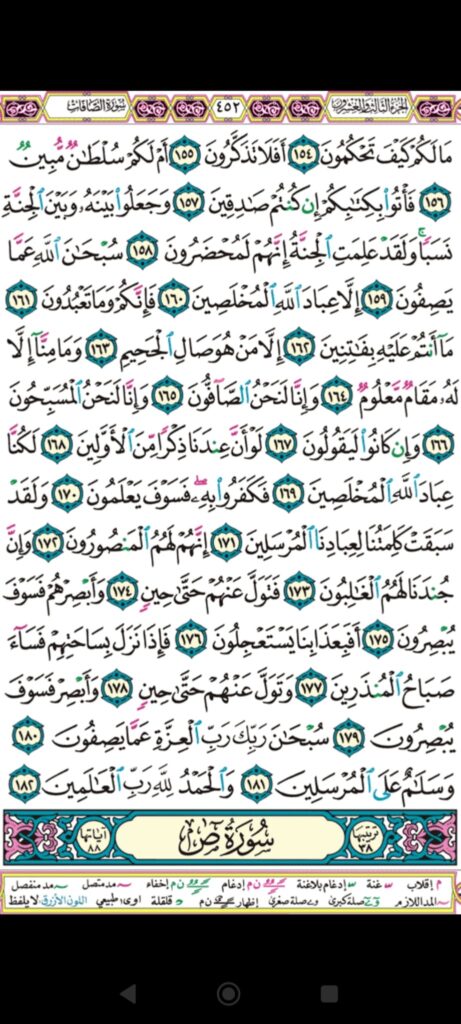 الجزء الثالث والعشرون ٤٥٢ سورة الصافات
مَا لَكُمْ كَيْفَ تَحْكُمُونَ ١٥٤ أَفَلَا تَذَكَّرُونَ ١٥٥ أَمْ لَكُمْ سُلْطَانٌ مُّبِينٌ
١٥٦ فَأْتُوا بِكِتَابِكُمْ إِن كُنتُمْ صَادِقِينَ ١٥٧ وَجَعَلُوا بَيْنَهُ وَبَيْنَ الْجِنَّةِ
نَسَبًا وَلَقَدْ عَلِمَتِ الْجِنَّةُ إِنَّهُمْ لَمُحْضَرُونَ ١٥٨ سُبْحَانَ اللَّهِ عَمَّا
يَصِفُونَ ١٥٩ إِلَّا عِبَادَ اللَّهِ الْمُخْلَصِينَ ١٦٠ فَإِنَّكُمْ وَمَا تَعْبُدُونَ ١٦١
مَا أَنتُمْ عَلَيْهِ بِفَاتِنِينَ ١٦٢ إِلَّا مَنْ هُوَ صَالِ الْجَحِيمِ ١٦٣ وَمَا مِنَّا إِلَّا
لَهُ مَقَامٌ مَّعْلُومٌ ١٦٤ وَإِنَّا لَنَحْنُ الصَّافُّونَ ١٦٥ وَإِنَّا لَنَحْنُ الْمُسَبِّحُونَ
١٦٦ وَإِن كَانُوا لَيَقُولُونَ ١٦٧ لَوْ أَنَّ عِندَنَا ذِكْرًا مِّنَ الْأَوَّلِينَ ١٦٨ لَكُنَّا
عِبَادَ اللَّهِ الْمُخْلَصِينَ ١٦٩ فَكَفَرُوا بِهِ ۖ فَسَوْفَ يَعْلَمُونَ ١٧٠ وَلَقَدْ
سَبَقَتْ كَلِمَتُنَا لِعِبَادِنَا الْمُرْسَلِينَ ١٧١ إِنَّهُمْ لَهُمُ الْمَنصُورُونَ ١٧٢ وَإِنَّ
جُندَنَا لَهُمُ الْغَالِبُونَ ١٧٣ فَتَوَلَّ عَنْهُمْ حَتَّى حِينٍ ١٧٤ وَأَبْصِرْهُمْ فَسَوْفَ
يُبْصِرُونَ ١٧٥ أَفَبِعَذَابِنَا يَسْتَعْجِلُونَ ١٧٦ فَإِذَا نَزَلَ بِسَاحَتِهِمْ فَسَاءَ
صَبَاحُ الْمُنذَرِينَ ١٧٧ وَتَوَلَّ عَنْهُمْ حَتَّى حِينٍ ١٧٨ وَأَبْصِرْ فَسَوْفَ
يُبْصِرُونَ ١٧٩ سُبْحَانَ رَبِّكَ رَبِّ الْعِزَّةِ عَمَّا يَصِفُونَ ١٨٠
وَسَلَامٌ عَلَى الْمُرْسَلِينَ ١٨١ وَالْحَمْدُ لِلَّهِ رَبِّ الْعَالَمِينَ ١٨٢
ترتيبها ٣٨ سُورَةُ صٓ آياتها ٨٨
م إقلاب غنة إدغام بلاغنة ن م إدغام ن م إخفاء مد متصل مد منفصل
المد اللازم صلة كبرى صلة صغرى إظهار ن م قلقلة اوى طبيعي اللون الأزرق: لا يلفظ